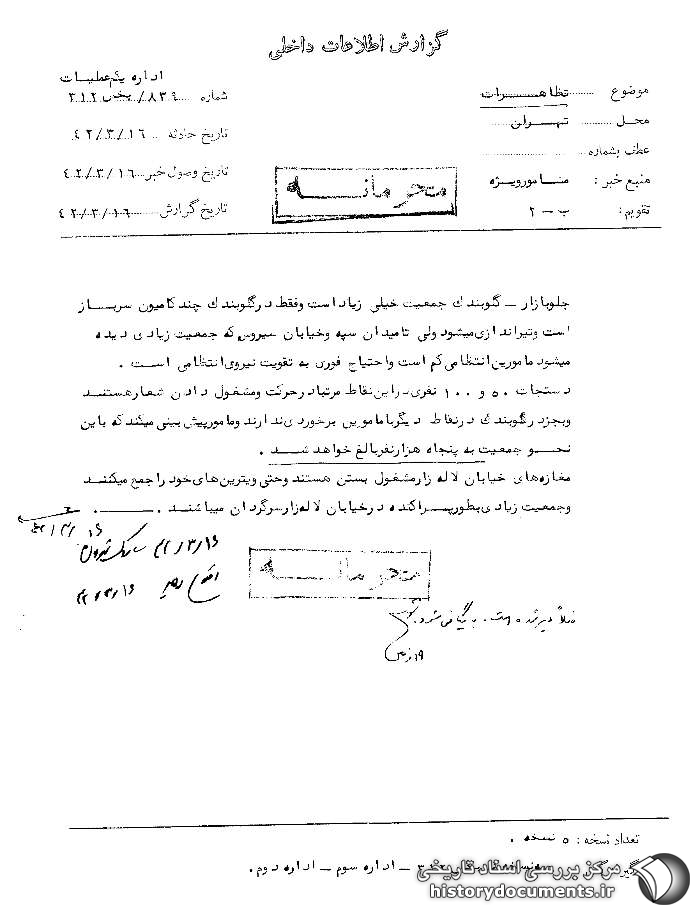 گزارش اطلاعات داخلی
اداره یکم عملیات
موضوع تظاهرات
شماره ۸۳۶/بخش ۳۱۲
محل تهران
تاریخ حادثه ۴۲/۳/۱۶
عطف بشماره
تاریخ وصول خبر ۴۲/۳/۱۶
منبع خبر : مامور ویژه
محرمانه
تاریخ گزارش ۴۲/۳/۱۶
تقویم : ب - ۲
جلو بازار - گلوبندك جمعیت خیلی زیاد است و فقط در گلوبندك چند کامیون سرباز
است و تیراندازی میشود ولی تا میدان سپه و خیابان سیروس که جمعیت زیادی دیده
میشود مامورین انتظامی کم است و احتیاج فوری به تقویت نیروی انتظامی است .
دستجات ۵۰ و ۱۰۰ نفری در این نقاط مرتبا در حرکت و مشغول دادن شعار هستند
و بجز در گلوبندك در نقاط دیگر با مامورین برخوردی ندارند و مامور پیش بینی میکند که با این
نحو جمعیت به پنجاه هزار نفر بالغ خواهد شد .
مغازه‌های خیابان لاله زار مشغول بستن هستند و حتی ویترین‌های خود را جمع میکنند
و جمعیت زیادی بطور پراکنده در خیابان لاله زار سرگردان میباشند .
۴۲/۳/۱۶
۴۲/۳/۱۶
محرمانه
۴۲/۳/۱۶
بایگانی شود
تعداد نسخه : ۵ نسخه .
اداره سوم - اداره دوم .
مرکز بررسی اسناد تاریخی
historydocuments.ir